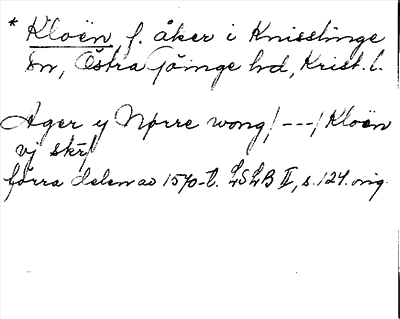 * Kloën f. åker i Knisslinge
sn, Östra Göinge hd, Krist. l.
Ager y Nørre wong / --- / Kloën
vj skr /
förra delen av 1570-t. LSLB II, s. 124. orig.